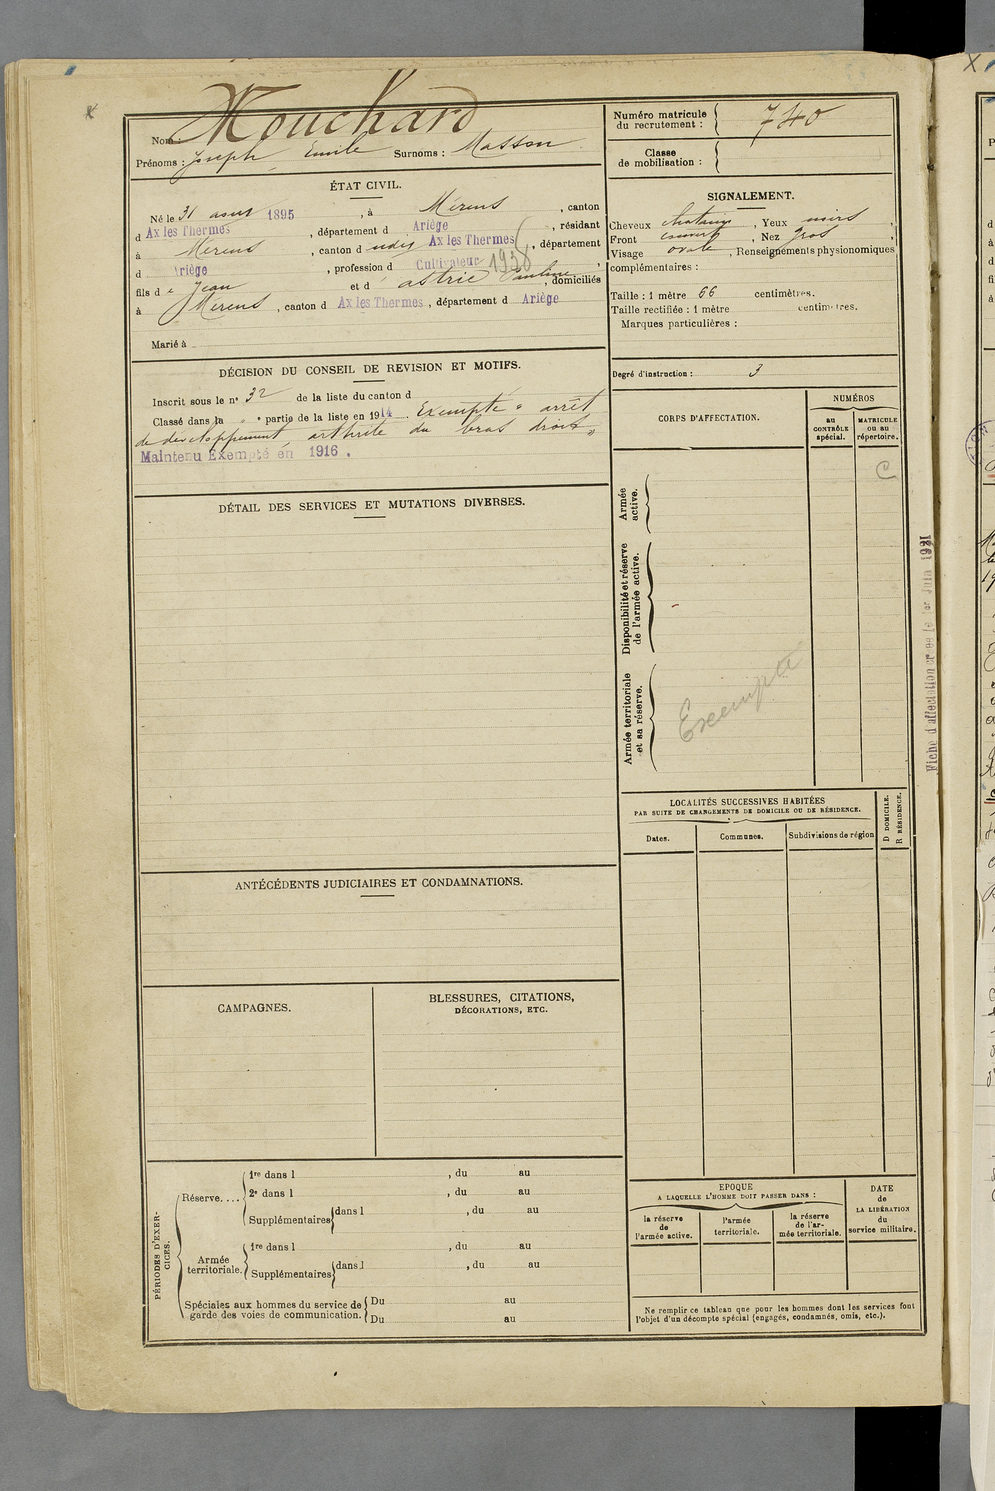 Nom : Mouchard
Prénoms : Joseph Emile Surnoms : Masson
Numéro matricule du recrutement : 740
Classe de mobilisation :
ÉTAT CIVIL.
Né le 31 août 1895, à Mérens, canton
d Ax les Thermes, département d Ariège, résidant
à Mérens, canton d udis Ax les Thermes, département
d Ariège, profession d Cultivateur 1938
fils de Jean et d astrié Pauline, domiciliés
à Mérens, canton d Ax les Thermes, département d Ariège
Marié à
SIGNALEMENT.
Cheveux chatains, Yeux noirs,
Front couvert, Nez gros,
Visage ovale, Renseignements physionomiques
complémentaires :
Taille : 1 mètre 66 centimètres.
Taille rectifiée : 1 mètre centimètres.
Marques particulières :
Degré d'instruction : 3
DÉCISION DU CONSEIL DE REVISION ET MOTIFS.
Inscrit sous le nº 32 de la liste du canton d
Classé dans la " partie de la liste en 1914. Exempté " arrêt
de développement, arthrite du bras droit "
Maintenu Exempté en 1916.
CORPS D'AFFECTATION.
NUMÉROS
au CONTRÔLE spécial.
MATRICULE ou au répertoire.
C
Armée active.
Disponibilité et réserve de l'armée active.
Armée territoriale et sa réserve.
Exempté
DÉTAIL DES SERVICES ET MUTATIONS DIVERSES.
LOCALITÉS SUCCESSIVES HABITÉES
PAR SUITE DE CHANGEMENTS DE DOMICILE OU DE RÉSIDENCE.
Dates.
Communes.
Subdivisions de région
D DOMICILE.
R RÉSIDENCE.
ANTÉCÉDENTS JUDICIAIRES ET CONDAMNATIONS.
CAMPAGNES.
BLESSURES, CITATIONS,
DÉCORATIONS, ETC.
PÉRIODES D'EXERCICES.
Réserve....
1re dans l , du au
2e dans l , du au
Supplémentaires dans l , du au
Armée territoriale.
1re dans l , du au
Supplémentaires dans l , du au
Spéciales aux hommes du service de garde des voies de communication.
Du au
Du au
EPOQUE
A LAQUELLE L'HOMME DOIT PASSER DANS :
la réserve de l'armée active.
l'armée territoriale.
la réserve de l'armée territoriale.
DATE de LA LIBÉRATION du service militaire.
Ne remplir ce tableau que pour les hommes dont les services font
l'objet d'un décompte spécial (engagés, condamnés, omis, etc.).